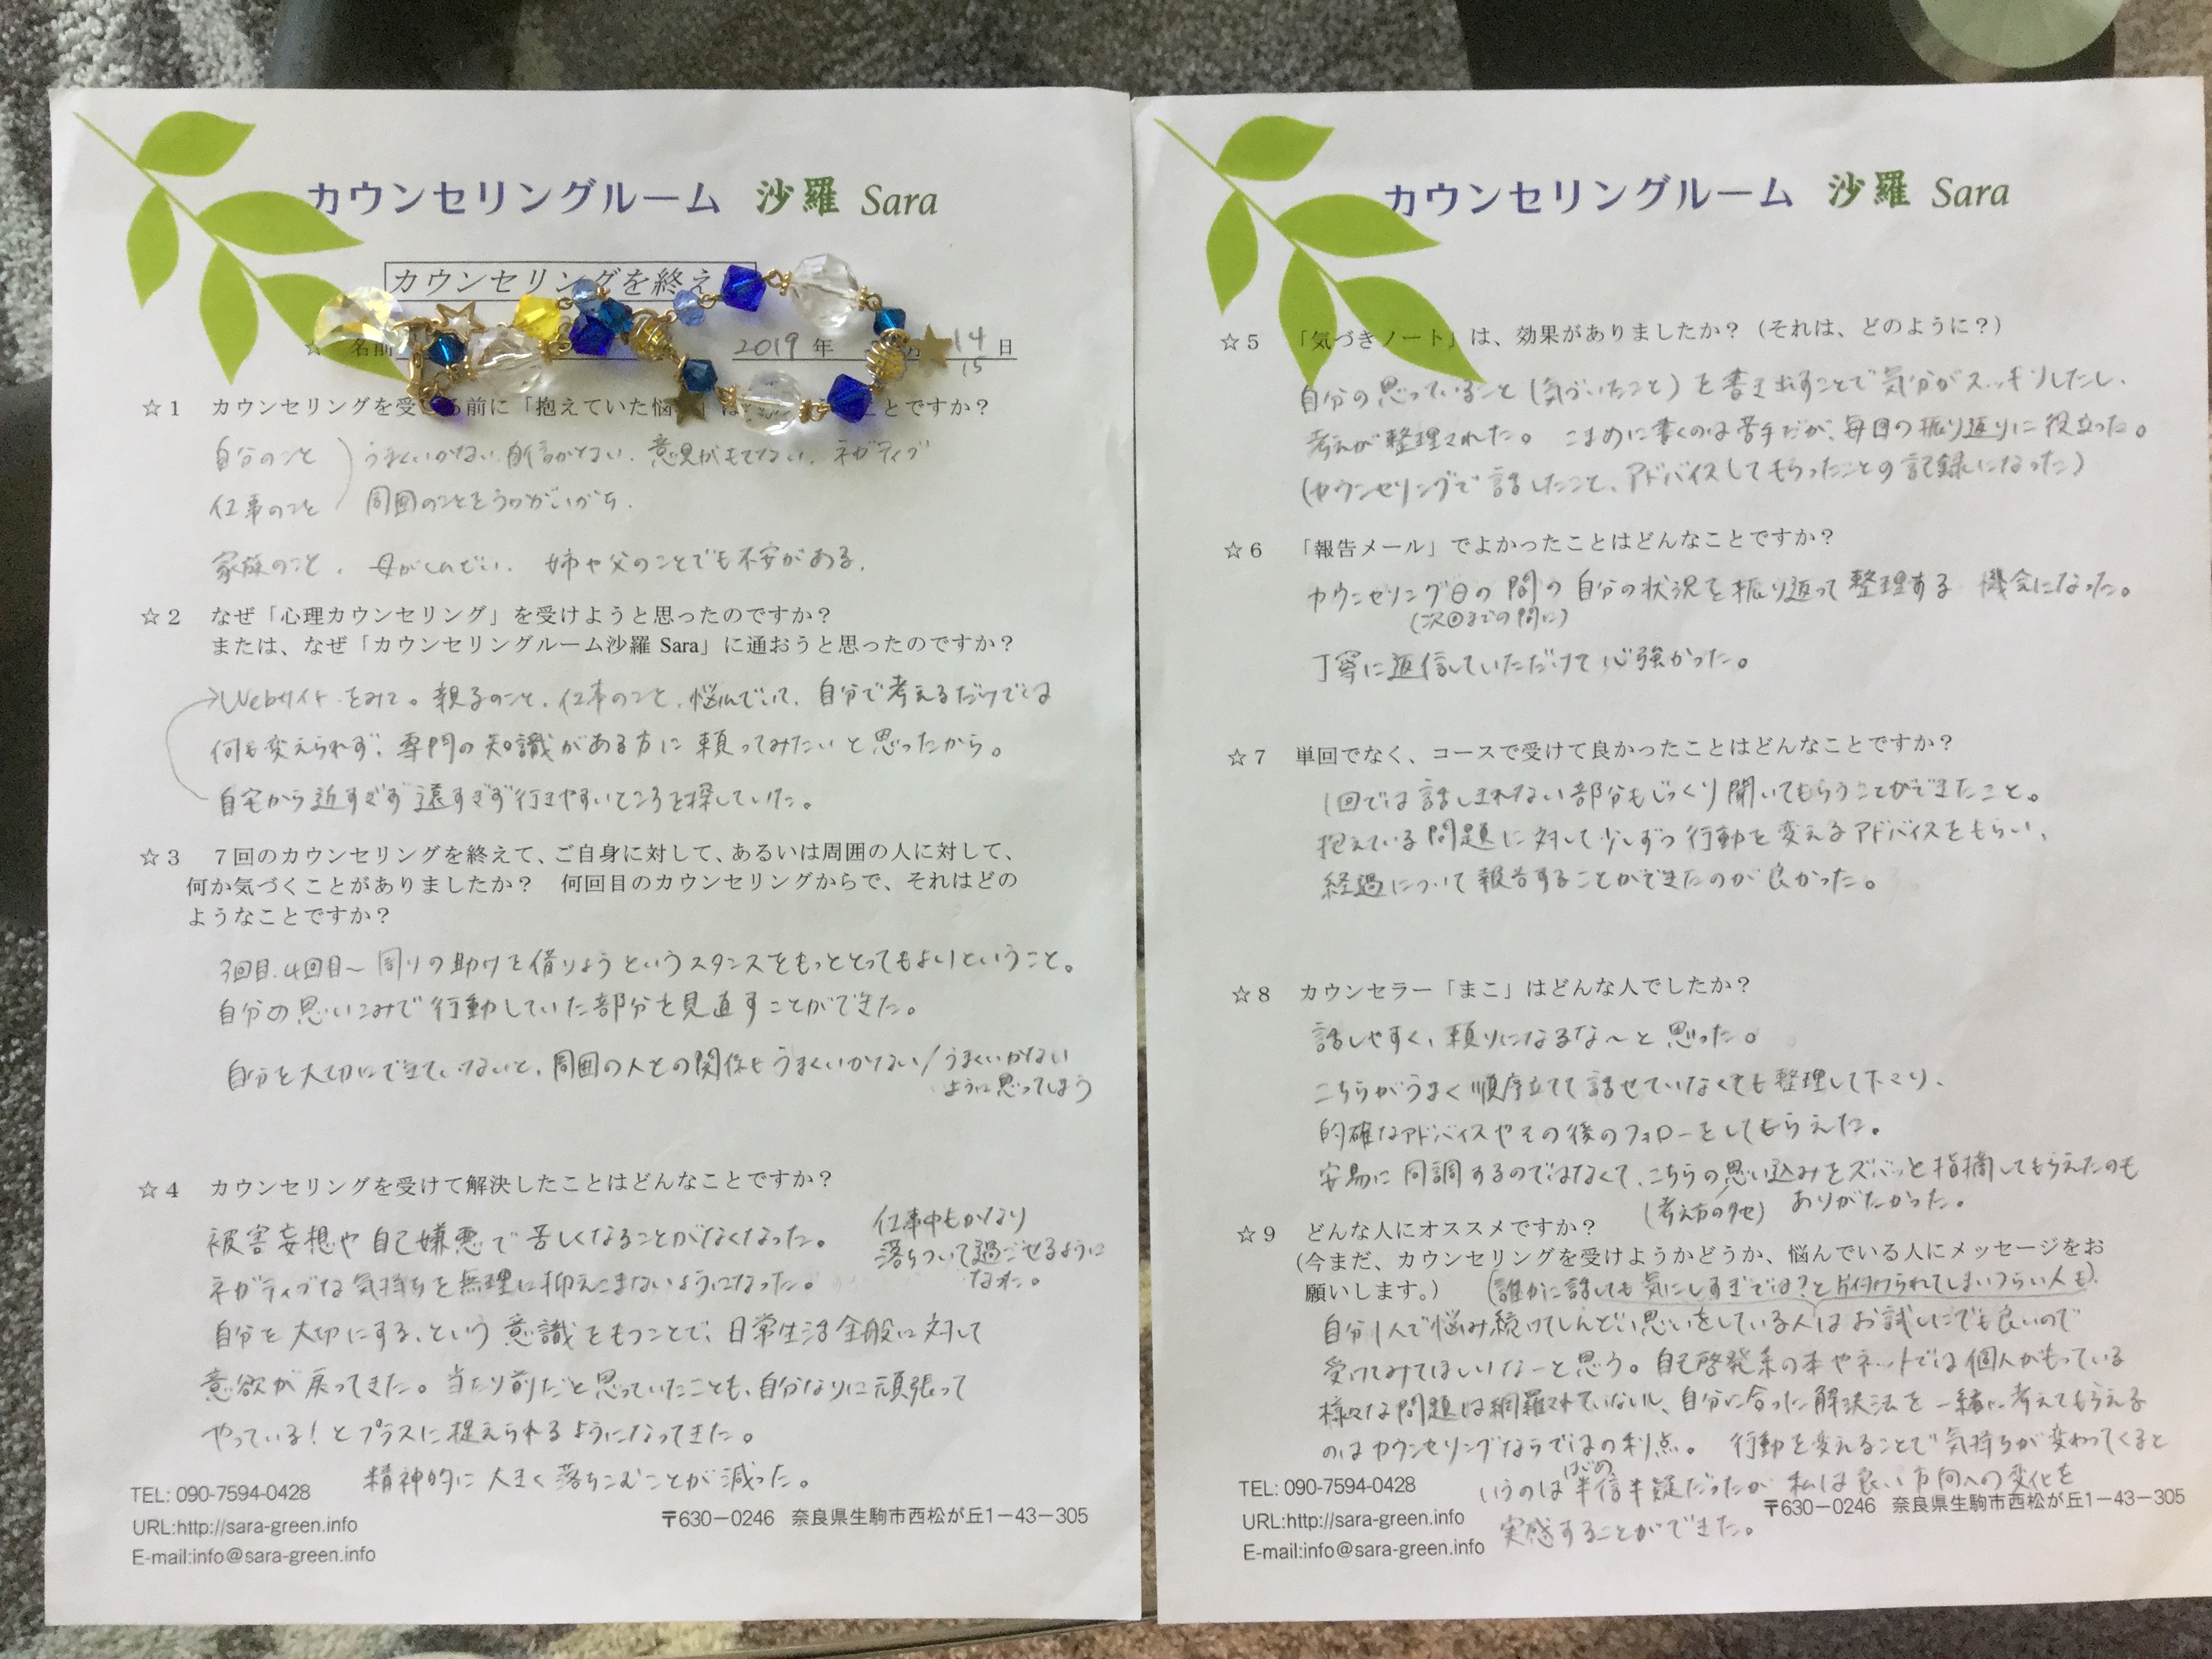 カウンセリングルーム 沙羅 Sara
カウンセリングを終え
名前 2019年 14日
15
☆1 カウンセリングを受ける前に「抱えていた悩 は ことですか？
自分のこと うまくいかない 自信がない、意見がもてない、ネガティブ
仕事のこと 周囲のことをうかがいがち.
家族のこと、母がしんどい、姉や父のことでも不安がある.
☆2 なぜ「心理カウンセリング」を受けようと思ったのですか？
または、なぜ「カウンセリングルーム沙羅 Sara」に通おうと思ったのですか？
→Webサイトをみて。親子のこと、仕事のこと、悩んでいて、自分で考えるだけでは
何も変えられず、専門の知識がある方に頼ってみたいと思ったから。
自宅から近すぎず遠すぎず行きやすいところを探していた。
☆3 7回のカウンセリングを終えて、ご自身に対して、あるいは周囲の人に対して、
何か気づくことがありましたか？ 何回目のカウンセリングからで、それはどの
ようなことですか？
3回目.4回目〜 周りの助けを借りようというスタンスをもっととってもよいということ。
自分の思いこみで行動していた部分を見直すことができた。
自分を大切にできていないと、周囲の人との関係もうまくいかない/うまくいかない
ように思ってしまう
☆4 カウンセリングを受けて解決したことはどんなことですか？
被害妄想や自己嫌悪で苦しくなることがなくなった。
仕事中もかなり
落ちついて過ごせるように
なれた。
ネガティブな気持ちを無理に抑えこまないようになった。
自分を大切にする、という意識をもつことで、日常生活全般に対して
意欲が戻ってきた。当たり前だと思っていたことも、自分なりに頑張って
やっている！とプラスに捉えられるようになってきた。
精神的に大きく落ちこむことが減った。
TEL: 090-7594-0428
URL:http://sara-green.info
E-mail:info@sara-green.info
〒630－0246 奈良県生駒市西松が丘1－43－305
カウンセリングルーム 沙羅 Sara
☆5 「気づきノート」は、効果がありましたか？（それは、どのように？）
自分の思っていること(気づいたこと)を書き出すことで気分がスッキリしたし、
考えが整理された。こまめに書くのは苦手だが、毎回の振り返りに役立った。
(カウンセリングで話したこと、アドバイスしてもらったことの記録になった)
☆6 「報告メール」でよかったことはどんなことですか？
カウンセリング日の間の自分の状況を振り返って整理する機会になった。
(次回までの間に)
丁寧に返信していただけて心強かった。
☆7 単回でなく、コースで受けて良かったことはどんなことですか？
1回では話しきれない部分もじっくり聞いてもらうことができたこと。
抱えている問題に対して少しずつ行動を変えるアドバイスをもらい、
経過について報告することができたのが良かった。
☆8 カウンセラー「まこ」はどんな人でしたか？
話しやすく、頼りになるな〜と思った。
こちらがうまく順序立てて話せていなくても整理して下さり、
的確なアドバイスやその後のフォローをしてもらえた。
安易に同調するのではなくて、こちらの思い込みをズバッと指摘してもらえたのも
(考え方のクセ) ありがたかった。
☆9 どんな人にオススメですか？
(今まだ、カウンセリングを受けようかどうか、悩んでいる人にメッセージをお
願いします。) (誰かに話しても気にしすぎでは？と片付けられてしまいつらい人も)
自分1人で悩み続けてしんどい思いをしている人はお試しにでも良いので
受けてみてほしいなーと思う。自己啓発系の本やネットでは個人がもっている
様々な問題は網羅されていないし、自分に合った解決法を一緒に考えてもらえる
のはカウンセリングならではの利点。行動を変えることで気持ちが変わってくると
いうのははじめ半信半疑だったが 私は良い方向への変化を
実感することができた。
TEL: 090-7594-0428
URL:http://sara-green.info
E-mail:info@sara-green.info
〒630－0246 奈良県生駒市西松が丘1－43－305